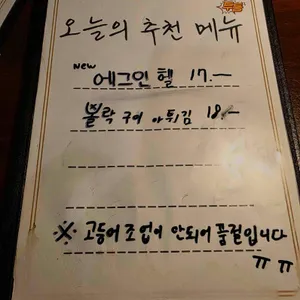 오늘의 추천 메뉴
New
에그인헬 17.-
볼락 구이 or 튀김 18.-
※ 고등어 조업이 안되어 품절입니다
ㅠㅠ